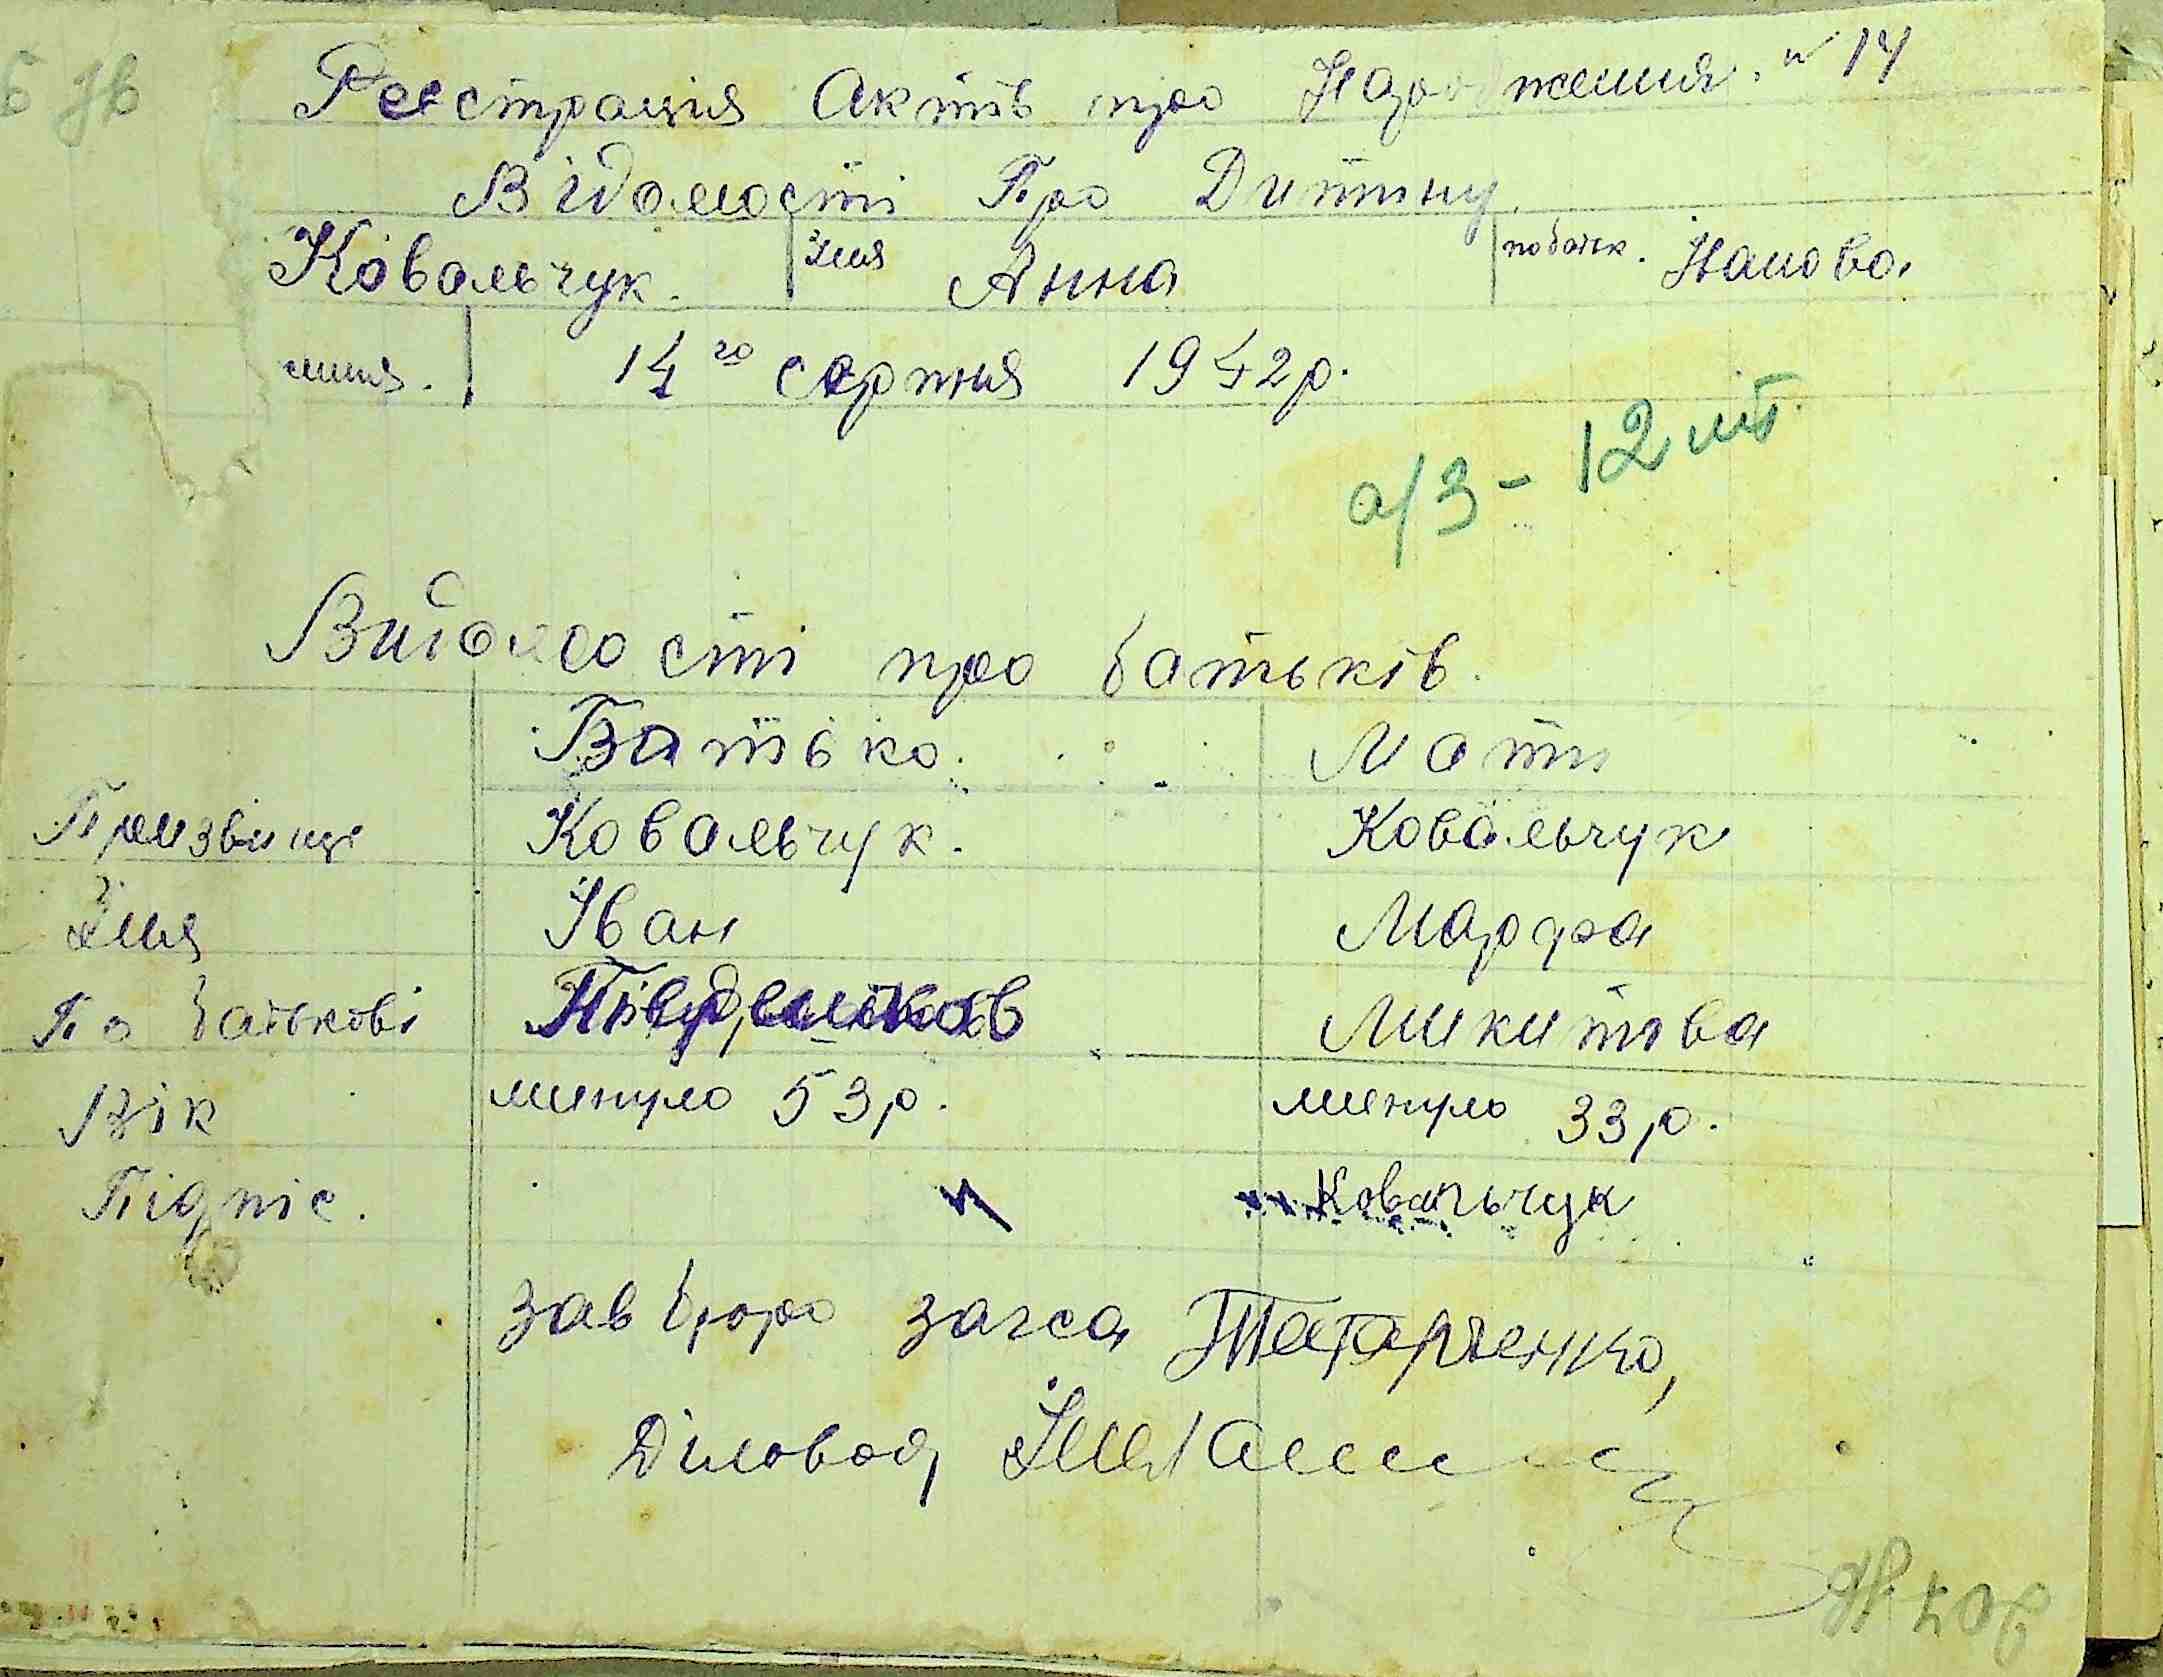 Реєстрація Актів про Народження. № 14
Відомості Про Дитину
Ковальчук. Імя Анна по батьк. Іванова
14го серпня 1942 р.
а/з - 12 шт.
Відомості про батьків.
Батько. Мати
Призвище Ковальчук. Ковальчук
Імя Іван Марфа
По батькові Микитова
Вік минуло 53 р. минуло 33 р.
Підпіс. Ковальчук
Зав бюро загса Татарченко,
Діловод